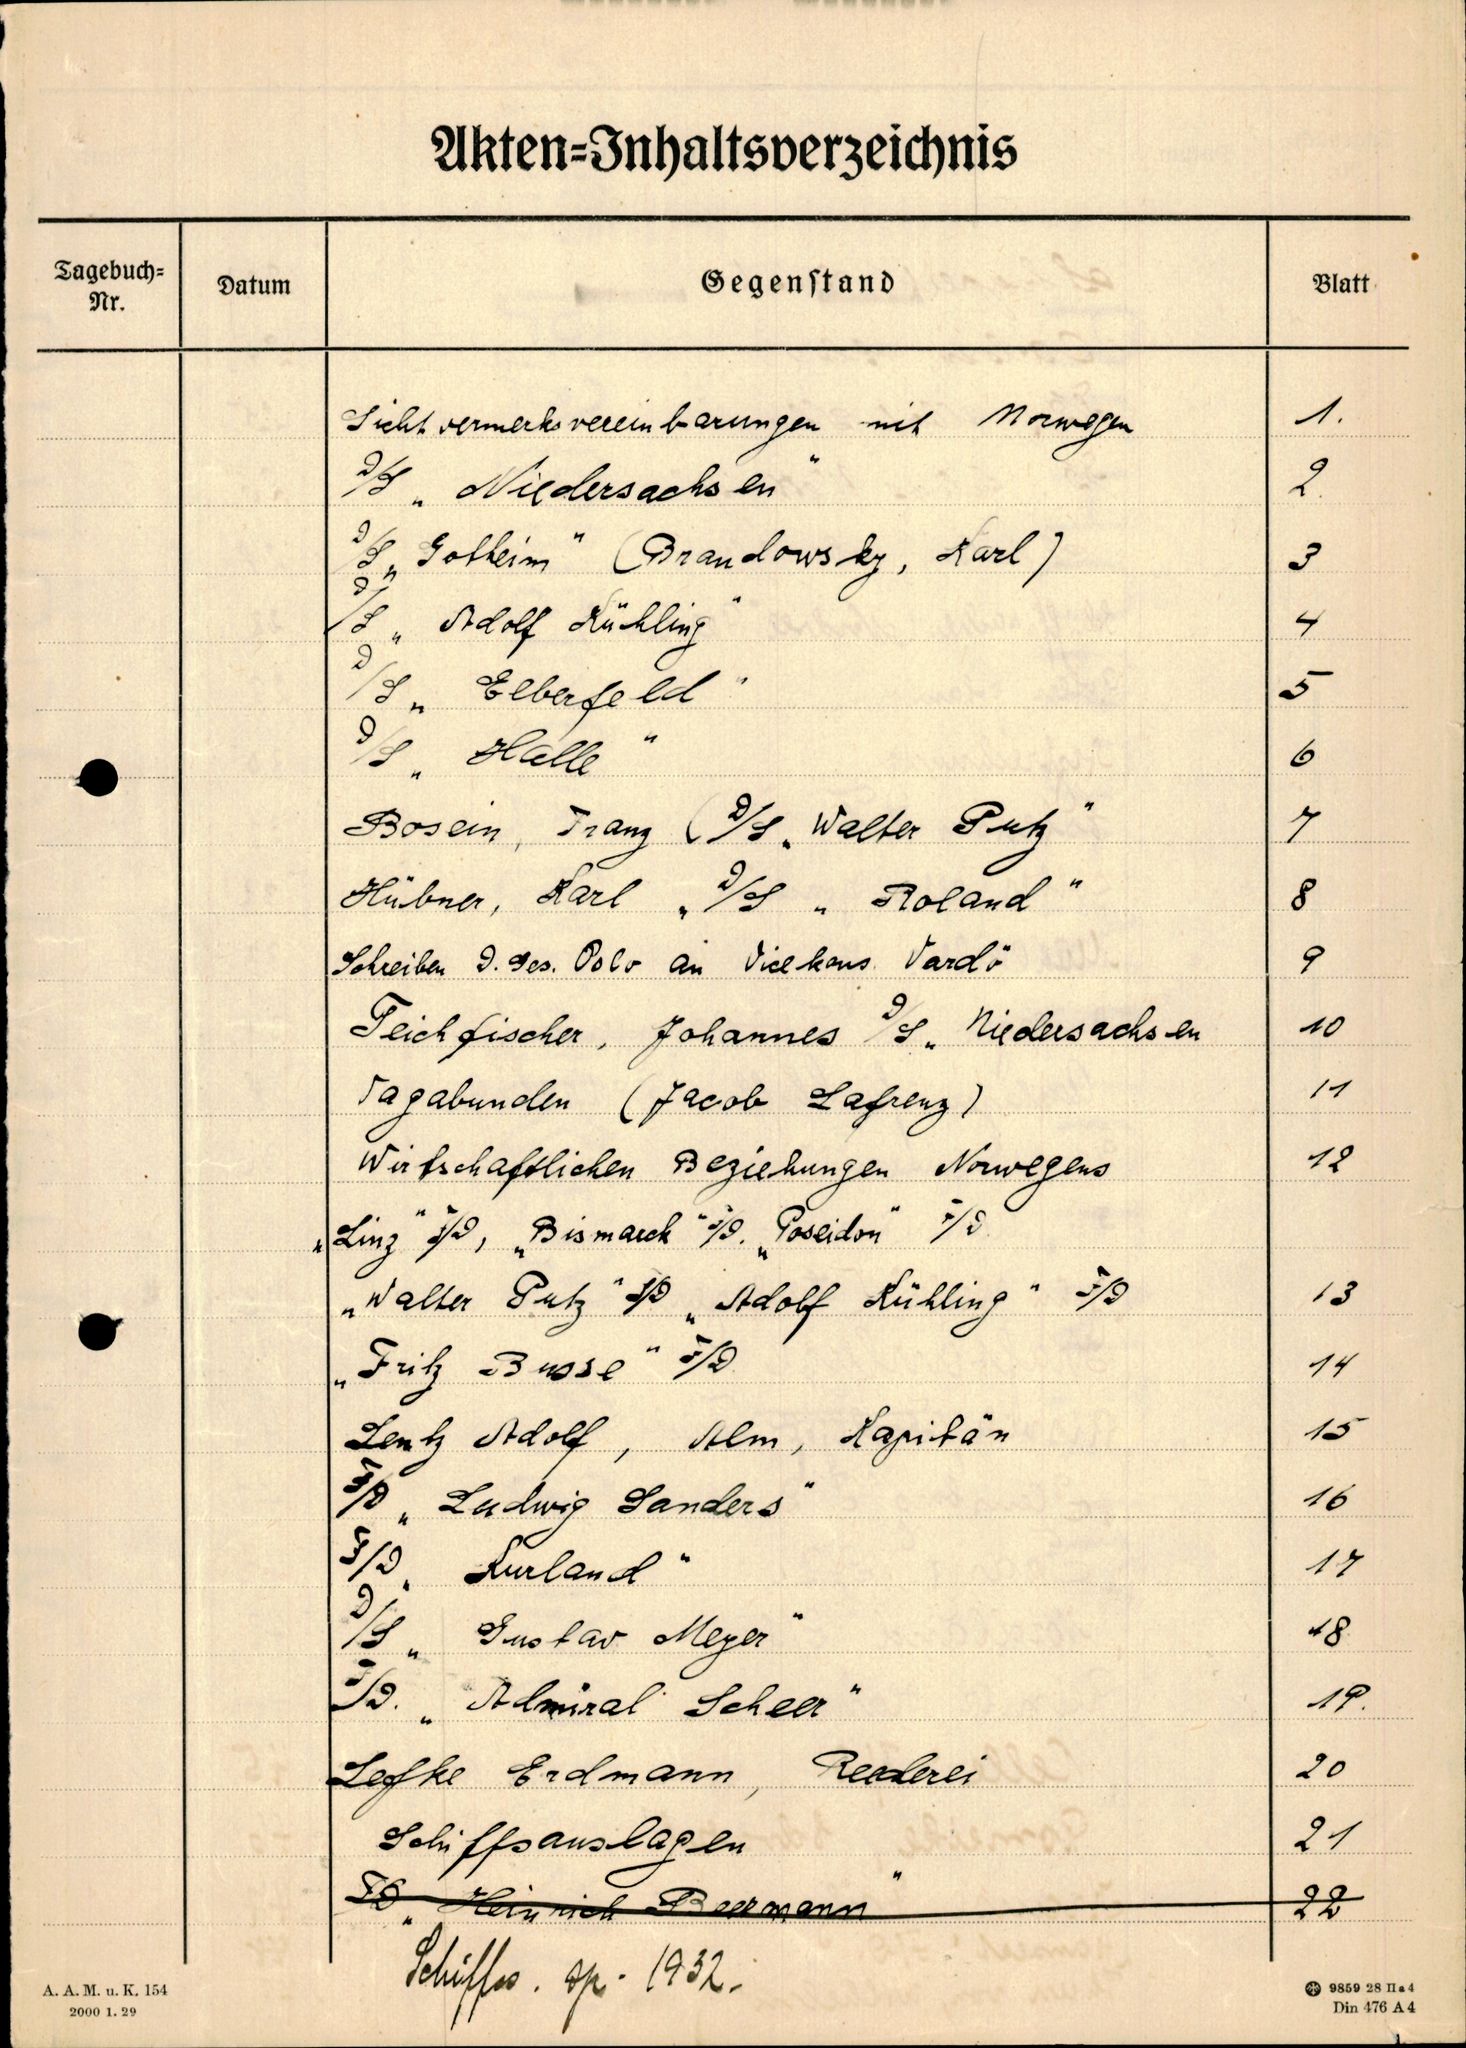 Akten=Inhaltsverzeichnis
Tagebuch=
Nr.
Datum
Gegenstand
Blatt
Sichtvermerksvereinbarungen mit Norwegen 1.
D/S „Niedersachsen" 2.
D/S „Gotheim" (Brandowsky, Karl) 3
D/S „Adolf Kühling" 4
D/S „Elberfeld" 5
D/S „Halle" 6
Bosein, Franz (D/S „Walter Putz" 7
Hübner, Karl „D/S „Roland" 8
Schreiben D. Ges. Oslo an Vicekons. Vardö 9
Teichfischer, Johannes D/S „Niedersachsen 10
Vagabunden (Jacob Lafrenz) 11
Wirtschaftlichen Beziehungen Norwegens 12
„Linz" F/D, „Bismarck" F/D. „Poseidon" F/D.
„Walter Putz" F/D „Adolf Kühling" F/D 13
„Fritz Busse" F/D. 14
Lentz Adolf, Alm, Kapitän 15
F/D „Ludwig Sanders" 16
F/D „Kurland" 17
D/S „Gustav Meyer" 18
F/D. „Admiral Scheer" 19.
Lefke Erdmann, Reederei 20
Schiffsauslagen 21
FD „Heinrich Beermann" 22
Schiffs. sp. 1932.
A. A. M. u. K. 154
2000 1. 29
9859 28 II a 4
Din 476 A 4